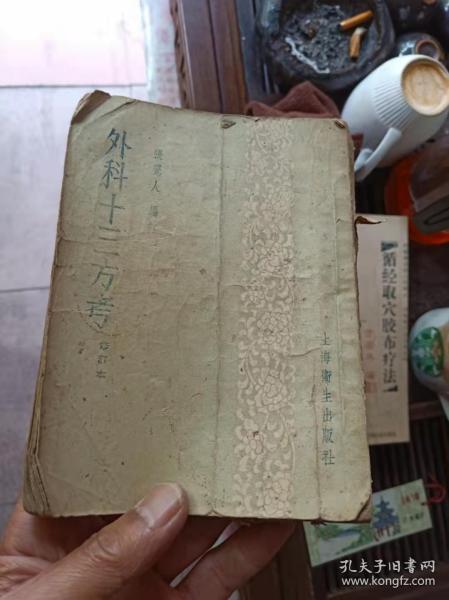 外科十三方考
修訂本
張覚人 編
上海衛生出版社
循经取穴胶布疗法
孔夫子旧书网
www.kongfz.com